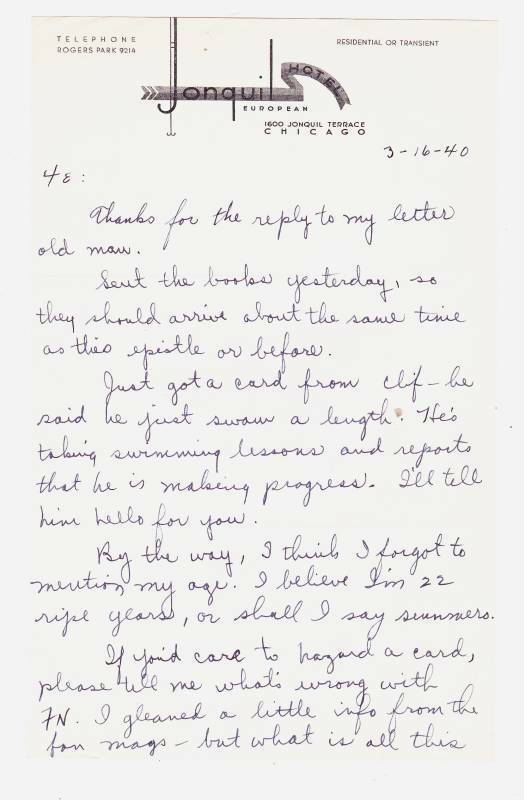 TELEPHONE
ROGERS PARK 9214
RESIDENTIAL OR TRANSIENT
Jonquil HOTEL
EUROPEAN
1600 JONQUIL TERRACE
CHICAGO
3-16-40
4e:
Thanks for the reply to my letter
old man.
Sent the books yesterday, so
they should arrive about the same time
as this epistle or before.
Just got a card from Clif - he
said he just swam a length. He's
taking swimming lessons and reports
that he is making progress. I'll tell
him hello for you.
By the way, I think I forgot to
mention my age. I believe I'm 22
ripe years, or shall I say summers.
If you'd care to hazard a card,
please tell me what's wrong with
FN. I gleaned a little info from the
fan mags - but what is all this